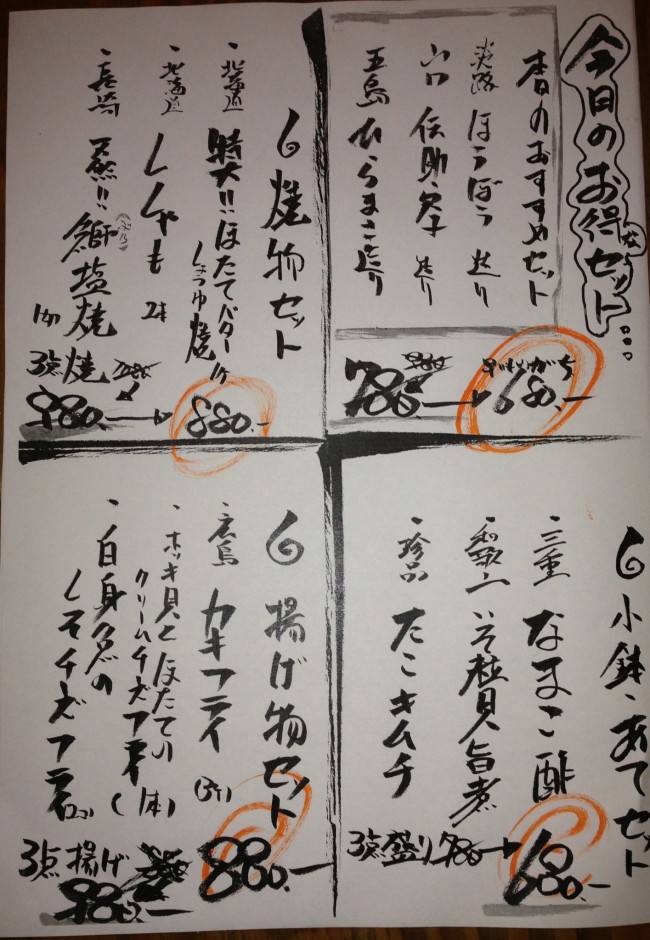 今日のお得なセット...
本日のおすすめセット
淡路 ほうぼう 造り
山口 伝助穴子 造り
五島 ひらまさ造り
680.-
780
6 焼物セット
・北海道 特大!!ほたてバター
しょうゆ焼
・北海道 ししゃも 2本
・長崎 蒸!! 鰤塩焼
3点焼
980.-
880.-
6 小鉢・あてセット
・三重 なまこ酢
・和歌山 いそ社貝旨煮
・珍品 たこキムチ
3点盛り 780
680.-
6 揚げ物セット
・広島 カキフライ
・ホッキ貝とほたての
クリームチーズフライ (1本)
・白身魚の
しそチーズフライ
3点揚げ
980.-
880.-